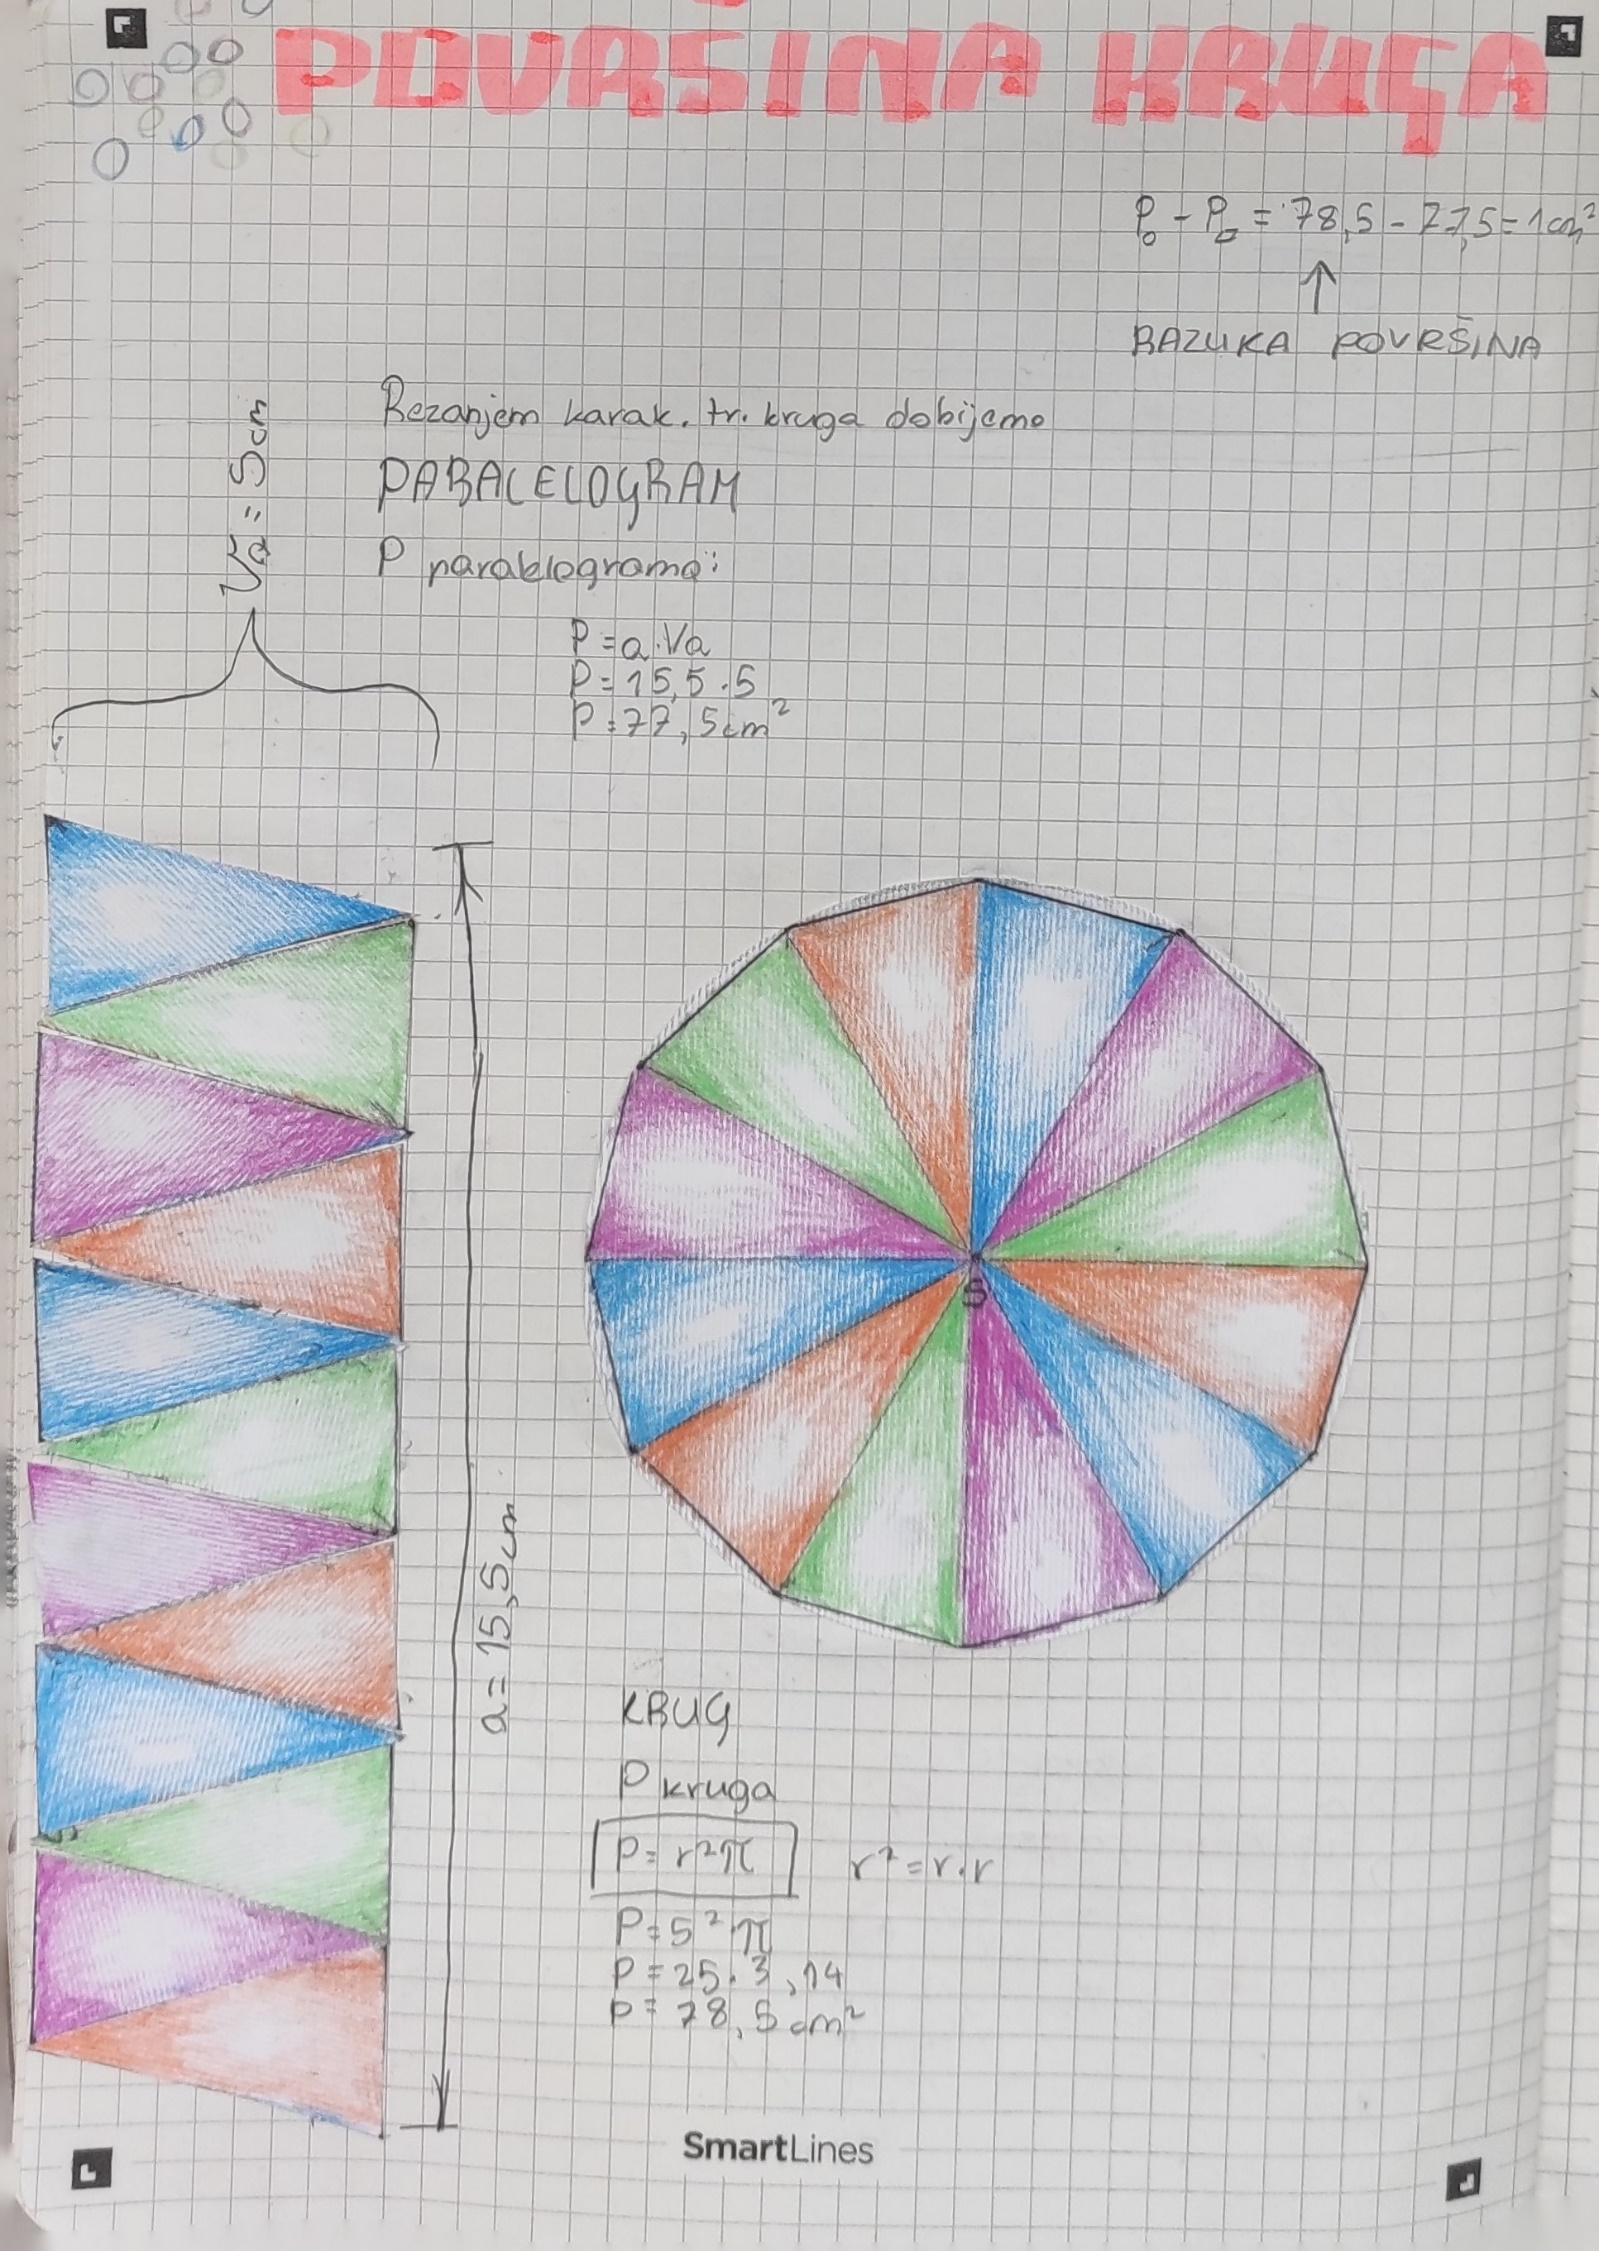 POVRŠINA KRUGA
P○ - P▱ = 78,5 - 77,5 = 1cm²
↑
RAZLIKA POVRŠINA
Va = 5cm
Rezanjem karak. tr. kruga dobijemo
PARALELOGRAM
P paralelograma:
P = a·Va
P = 15,5 · 5
P = 77,5cm²
a = 15,5cm
S
KRUG
P kruga
P = r²π
r² = r·r
P = 5²·π
P = 25·3,14
P = 78,5 cm²
SmartLines